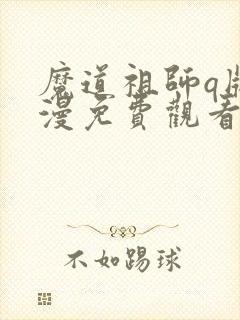 魔道祖師q版
漫免費觀看
不如踢球